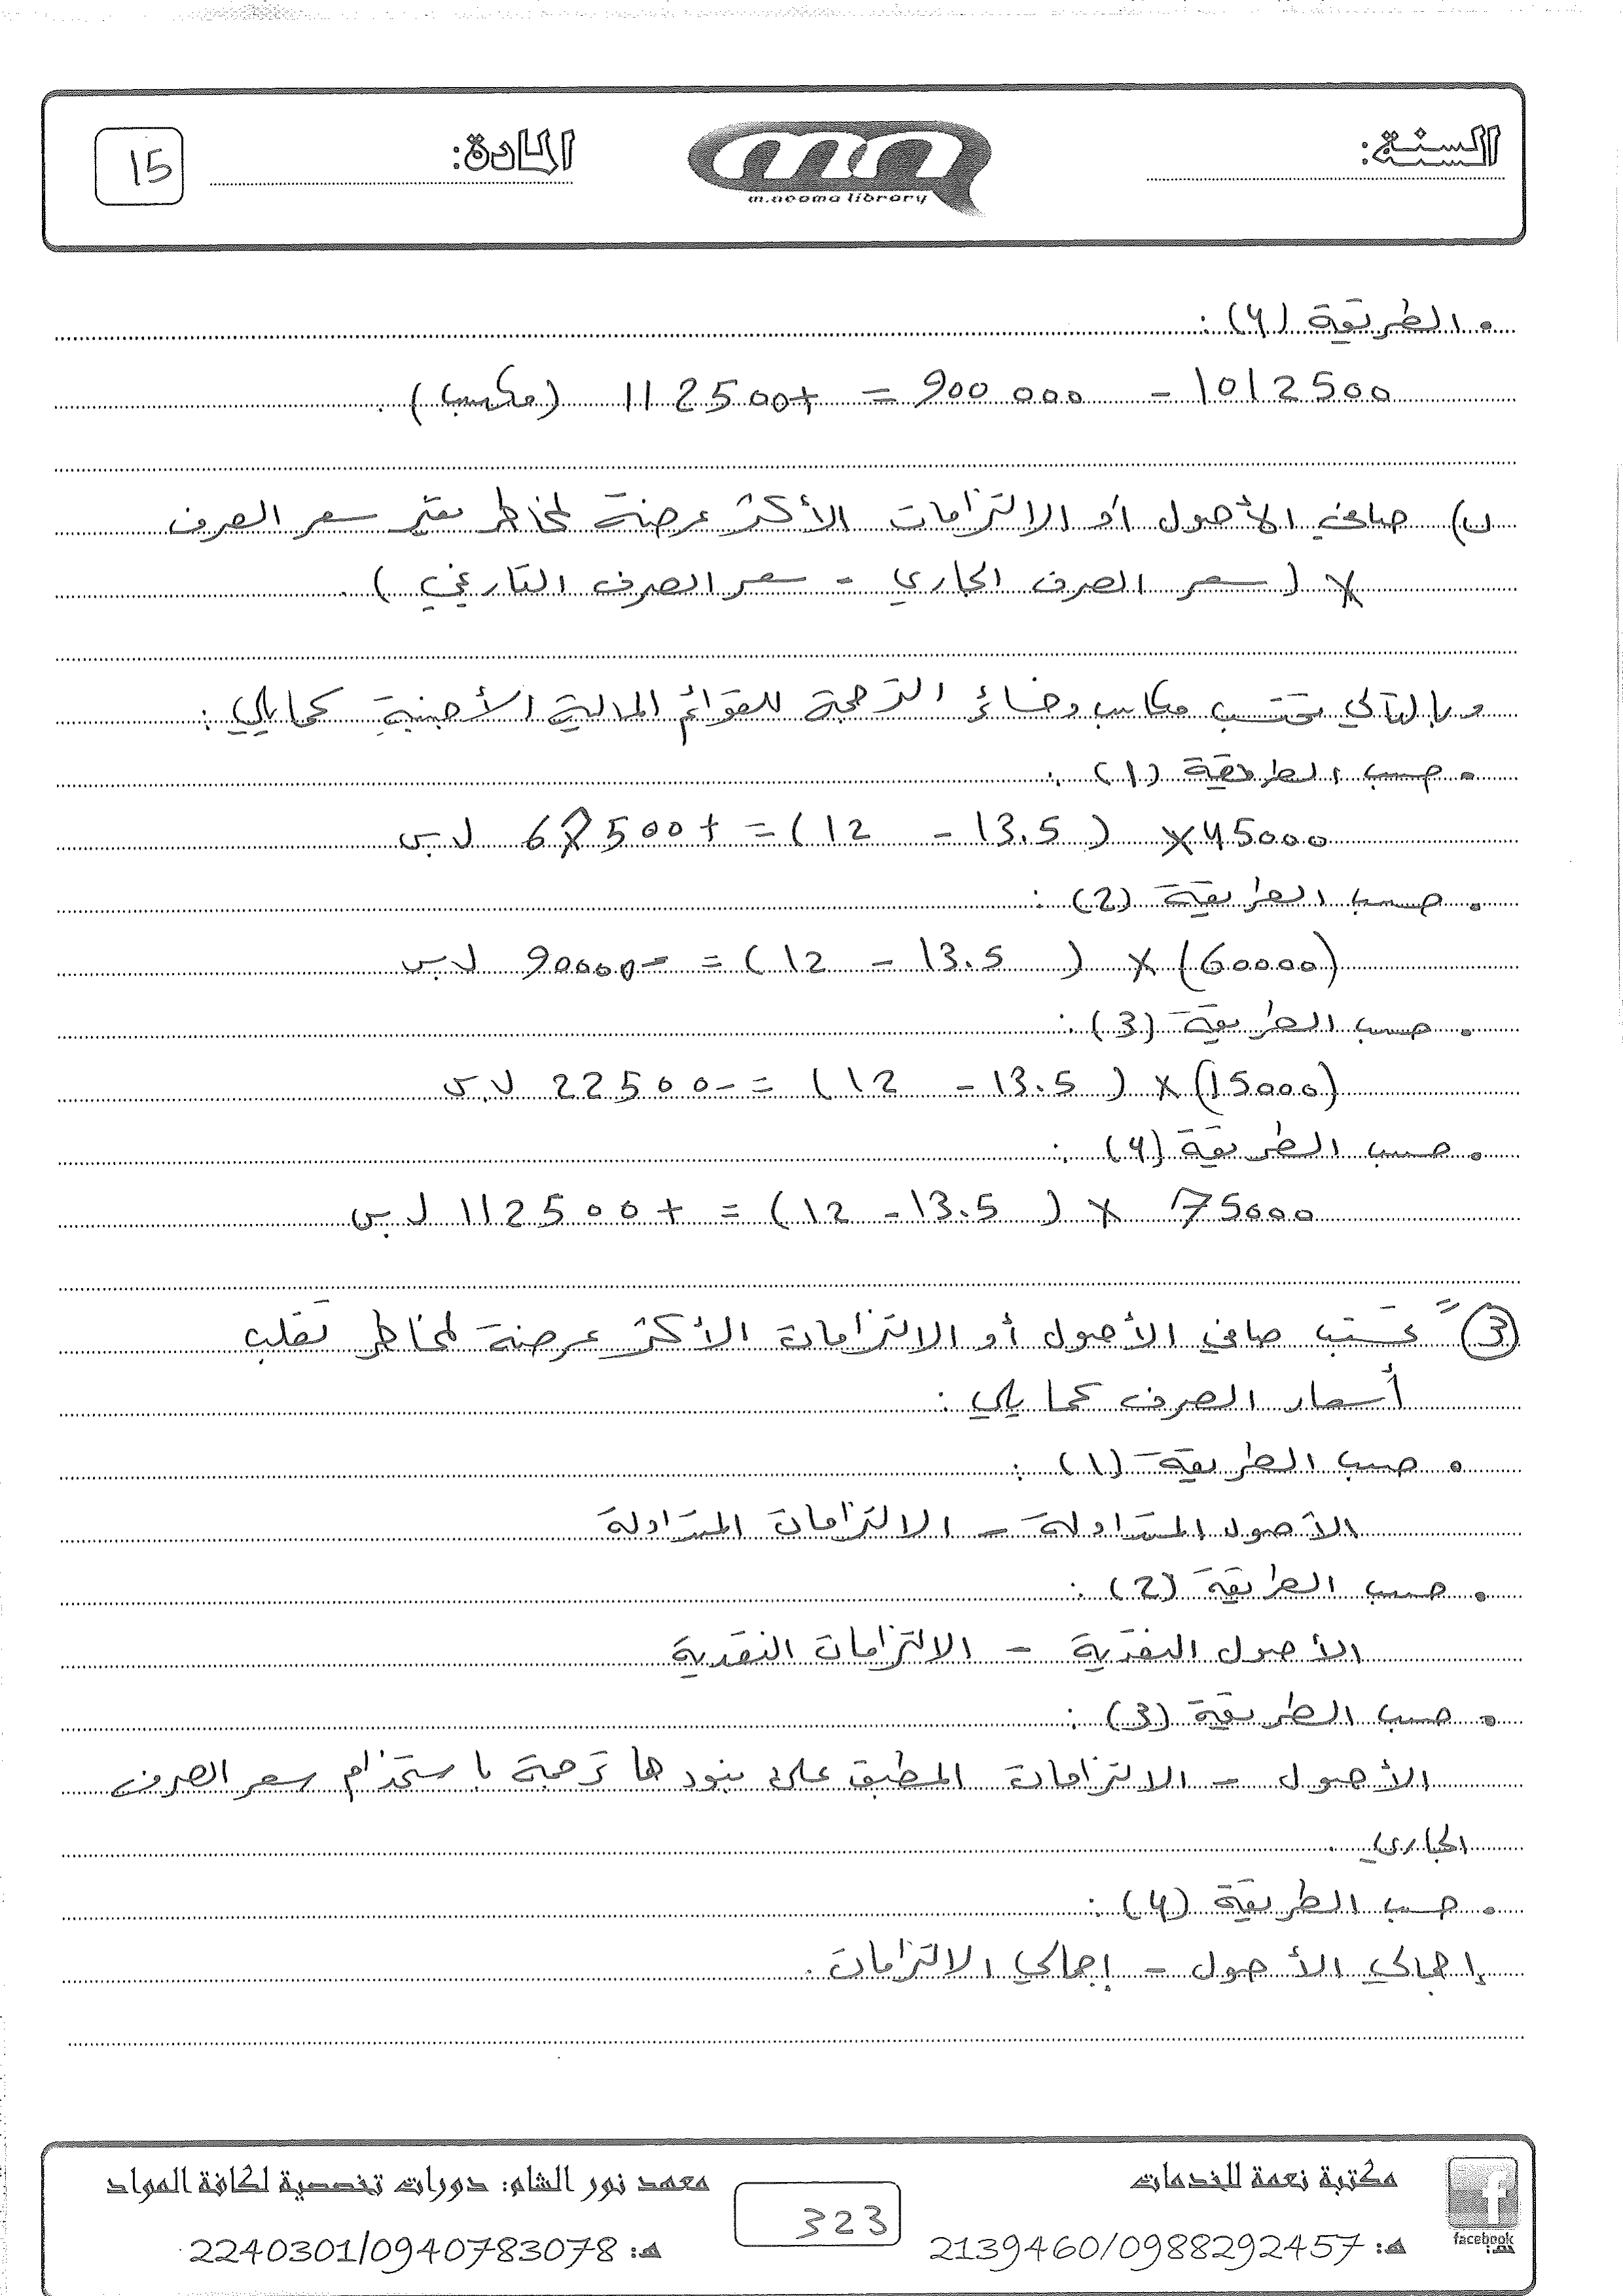 السنة:
المادة:
15
m.neama library
• الطريقة (4):
1012500 - 900 000 = +112500 (مكسب).
ب) صافي الأصول أو الالتزامات الأكثر عرضة لمخاطر تغير سعر الصرف
× (سعر الصرف الجاري - سعر الصرف التاريخي).
وبالتالي تحتسب مكاسب وخسائر الترجمة للقوائم المالية الأجنبية كما يلي:
• حسب الطريقة (1):
45000 × (13.5 - 12) = +67500 ل.س
• حسب الطريقة (2):
(60000) × (13.5 - 12) = -90000 ل.س
• حسب الطريقة (3):
(15000) × (13.5 - 12) = -22500 ل.س
• حسب الطريقة (4):
75000 × (13.5 - 12) = +112500 ل.س
③ تحتسب صافي الأصول أو الالتزامات الأكثر عرضة لمخاطر تقلب
أسعار الصرف كما يلي:
• حسب الطريقة (1):
الأصول المتداولة - الالتزامات المتداولة
• حسب الطريقة (2):
الأصول النقدية - الالتزامات النقدية
• حسب الطريقة (3):
الأصول - الالتزامات المطبق على بنودها ترجمة باستخدام سعر الصرف
الجاري.
• حسب الطريقة (4):
إجمالي الأصول - إجمالي الالتزامات.
مكتبة نعمة للخدمات
هـ: 2139460/0988292457
facebook
323
معهد نور الشام: دورات تخصصية لكافة المواد
هـ: 2240301/0940783078